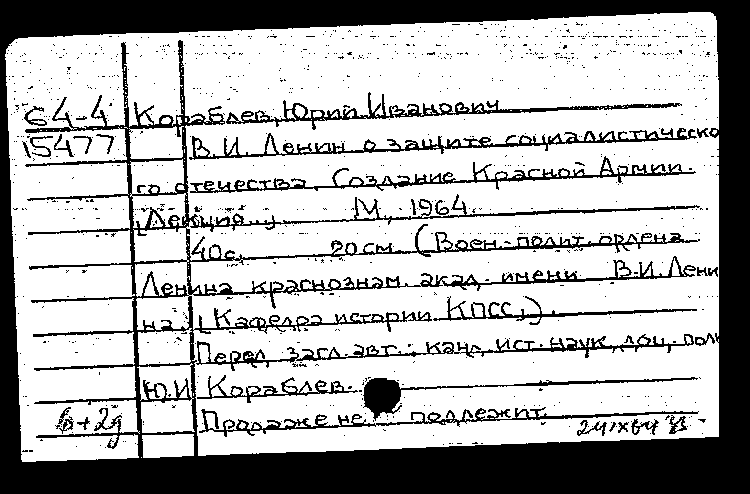 64-4 Кораблев, Юрий Иванович
15477 В.И. Ленин о защите социалистическо
го отечества. Создание Красной Армии.
[Лекция.]   М., 1964.
40 с.   20 см. (Воен.-полит. ордена
Ленина краснознам. акад. имени В.И. Лени
на. [Кафедра истории КПСС.]).
Перед загл. авт.: канд. ист. наук, доц., полк
Ю.И. Кораблев.
б+2д Продаже не подлежит.
24 IX 64